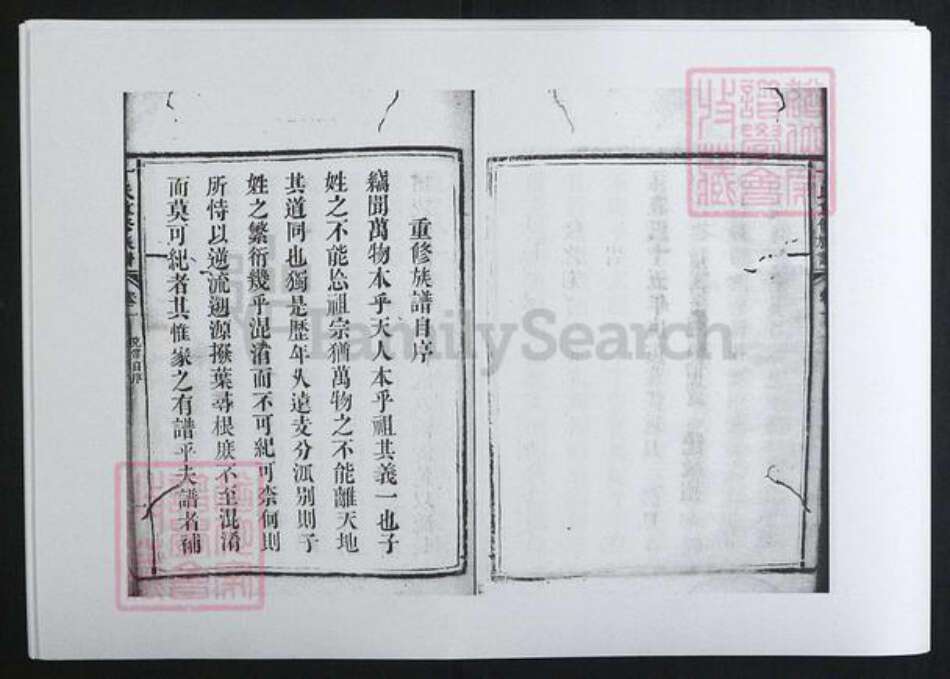 重修族譜自序
竊聞萬物本乎天人本乎祖其義一也子
姓之不能忘祖宗猶萬物之不能離天地
其道同也獨是歷年久遠支分派别則子
姓之繁衍幾乎混淆而不可紀可奈何則
所恃以逆流溯源撥葉尋根庶不至混淆
而莫可紀者其惟家之有譜乎夫譜者補
氏重修族譜
自序
FamilySearch